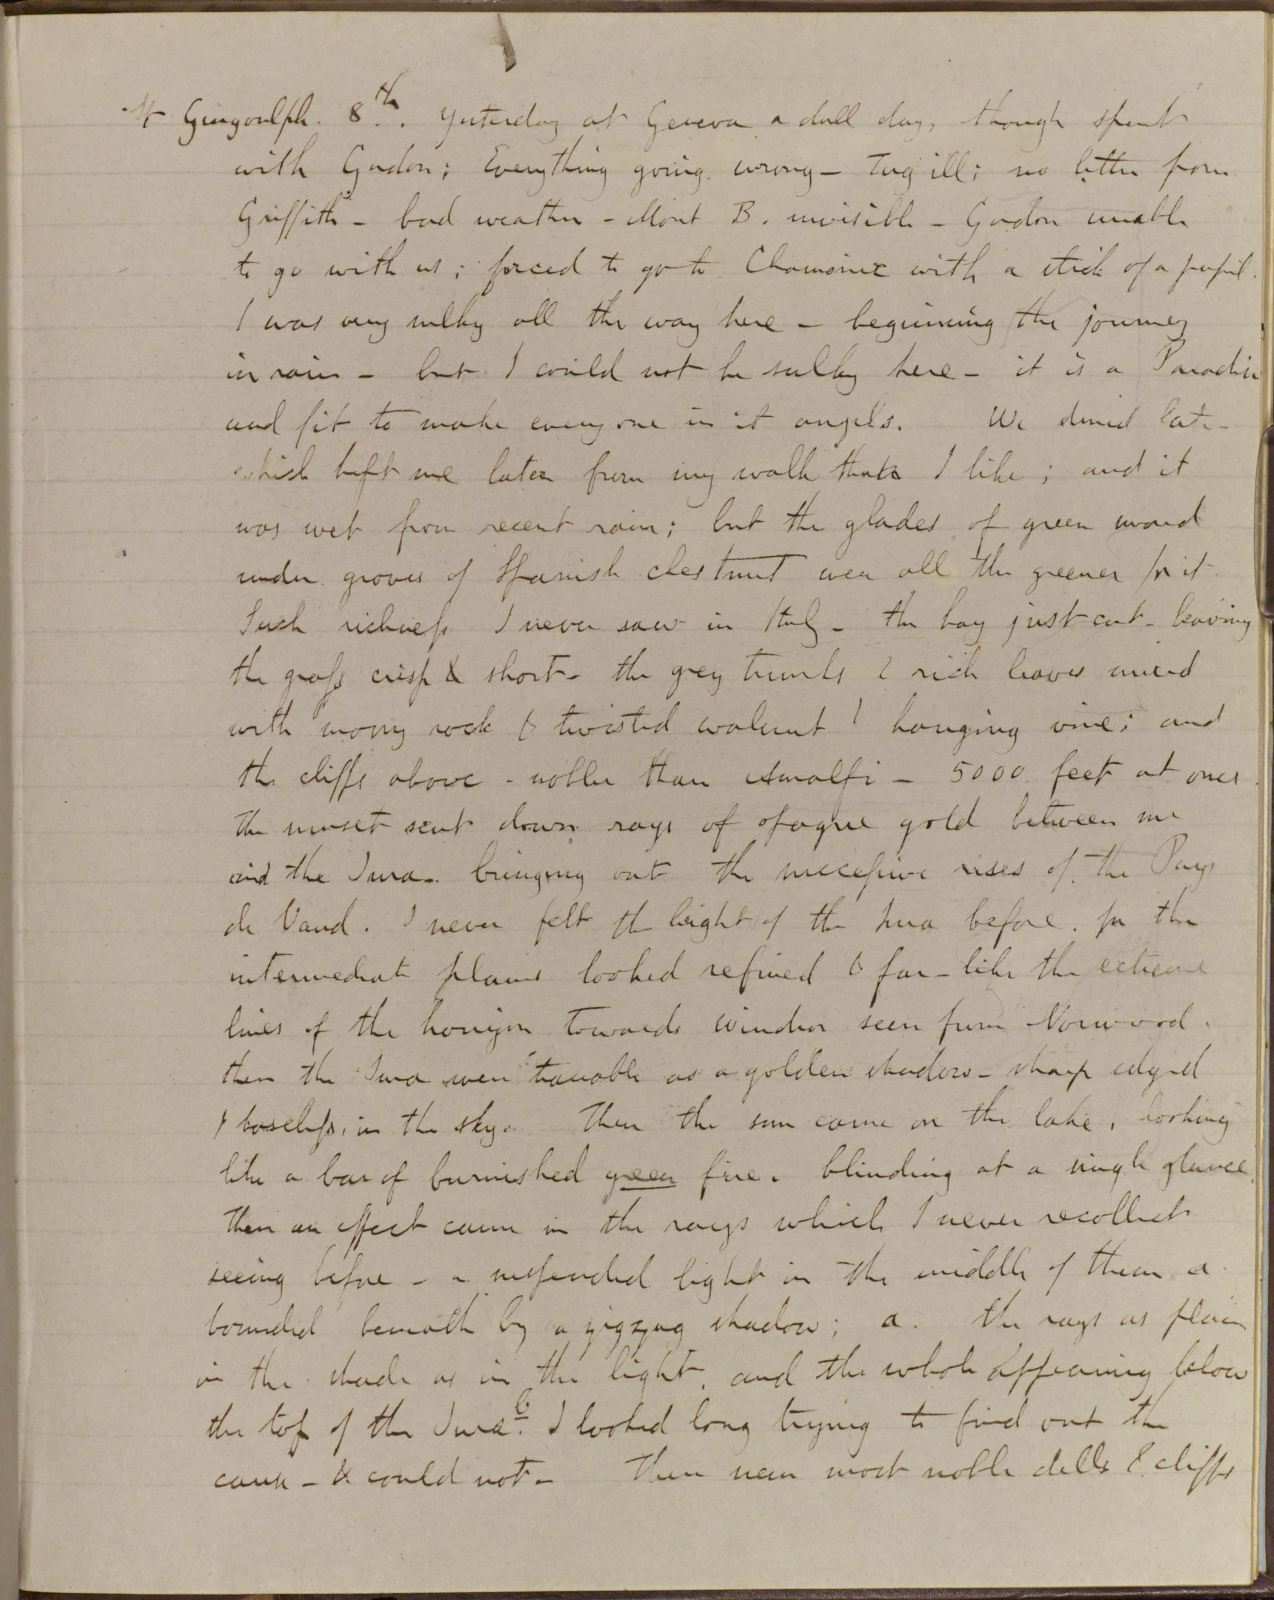 St Gingoulph. 8th. Yesterday at Geneva a dull day, though spent
with Gordon; Everything going wrong – Tug ill; no letter from
Griffith – bad weather – Mont B. invisible – Gordon unable
to go with us; forced to go to Chamonix with a stick of a pupil.
I was very sulky all the way here – beginning the journey
in rain – but I could not be sulky here – it is a Paradise
and fit to make every one in it angels. We dined late –
which left me later from my walk than I like; and it
was wet from recent rain; but the glades of green sward
under groves of Spanish chestnut were all the greener for it.
Such richness I never saw in Italy – the hay just cut – leaving
the grass crisp & short – the grey trunks & rich leaves mixed
with mossy rock & twisted walnut & hanging vine; and
the cliffs above – nobler than Amalfi – 5000 feet at once.
The sunset sent down rays of opaque gold between me
and the Jura – bringing out the successive rises of the Pays
de Vaud. I never felt the height of the Jura before. for the
intermediate plains looked refined & far – like the extreme
lines of the horizon towards Windsor seen from Norwood.
then the Jura were traceable as a golden shadow – sharp edged
& baseless, in the sky. Then the sun came on the lake, looking
like a bar of burnished green fire. blinding at a single glance.
Then an effect came in the rays which I never recollect
seeing before – a suspended light in the middle of them, a
bounded beneath by a zigzag shadow; a. the rays as plain
in the shade as in the light. and the whole appearing below
the top of the Jura b. I looked long trying to find out the
cause – & could not – Then near most noble dells & cliffs